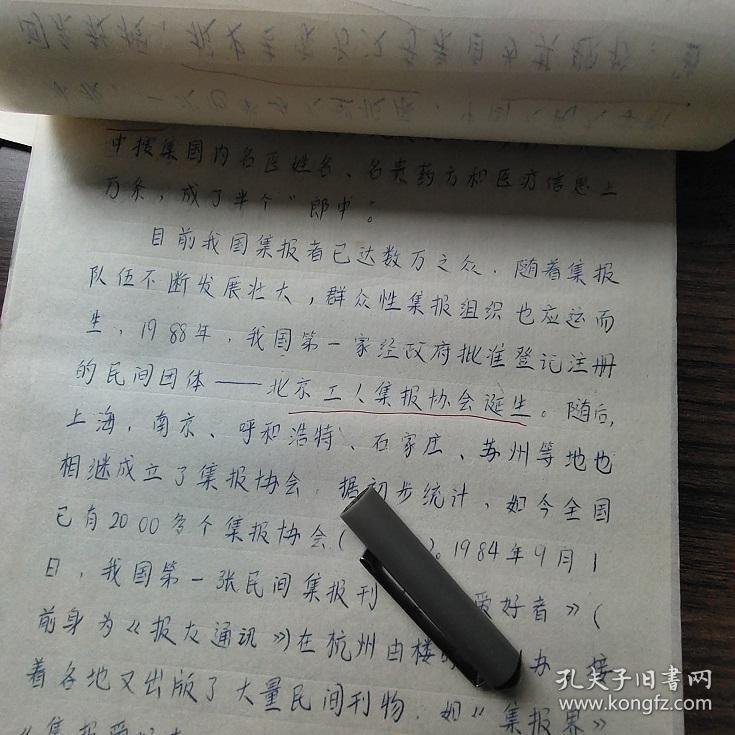 中搜集国内名医姓名、名贵药方和医疗信息上
万条，成了半个“郎中”。
目前我国集报者已达数万之众．随着集报
队伍不断发展壮大，群众性集报组织也应运而
生．1988年，我国第一家经政府批准登记注册
的民间团体——北京工人集报协会诞生。随后，
上海，南京、呼和浩特、石家庄、苏州等地也
相继成立了集报协会．据初步统计，如今全国
已有2000多个集报协会（）。1984年9月1
日，我国第一张民间集报刊 爱好者》（
前身为《报友通讯》）在杭州由楼 办．接
着各地又出版了大量民间刊物．如《集报界》
《集报
孔夫子旧书网
www.kongfz.com